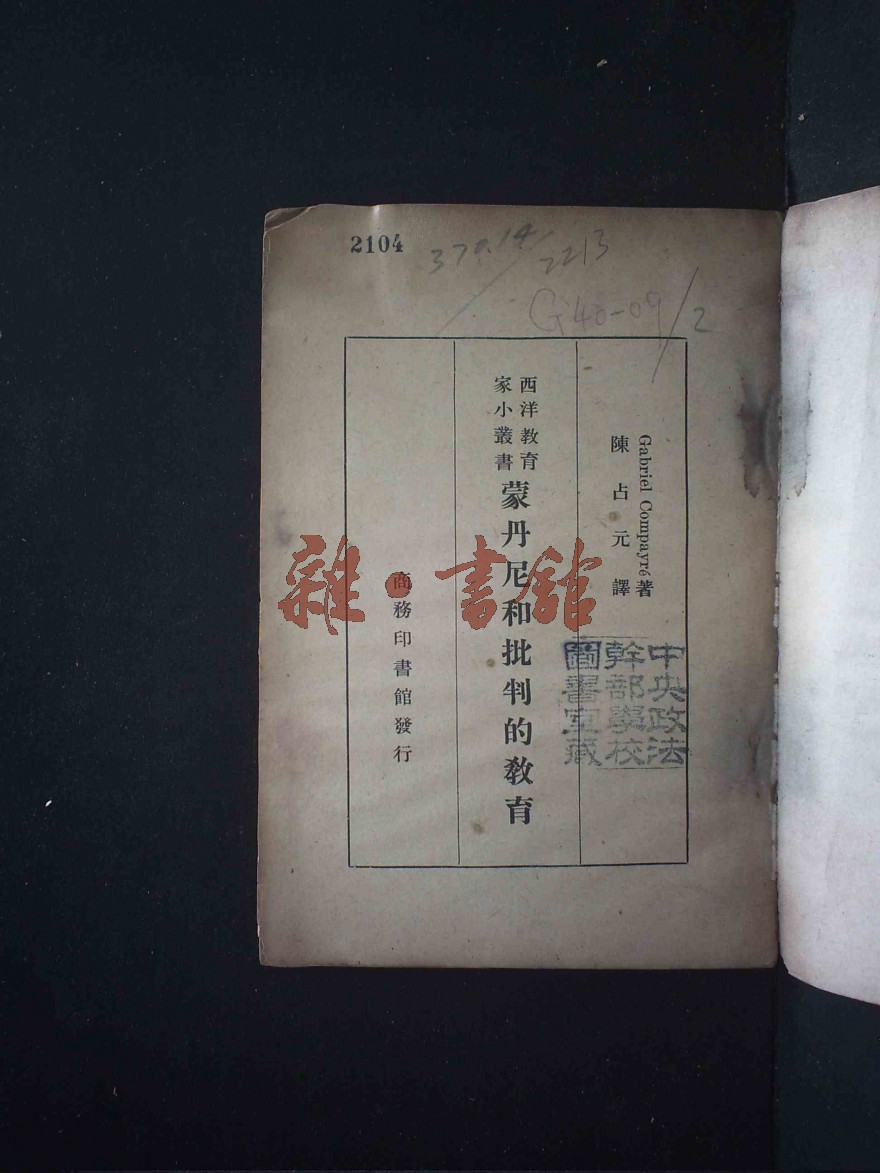 2104
370.14/2213
G40-09/2
Gabriel Compayré著
陳占元譯
西洋教育
家小叢書
蒙丹尼和批判的教育
商務印書館發行
中央政法
幹部學校
圖書室藏
雜·書館